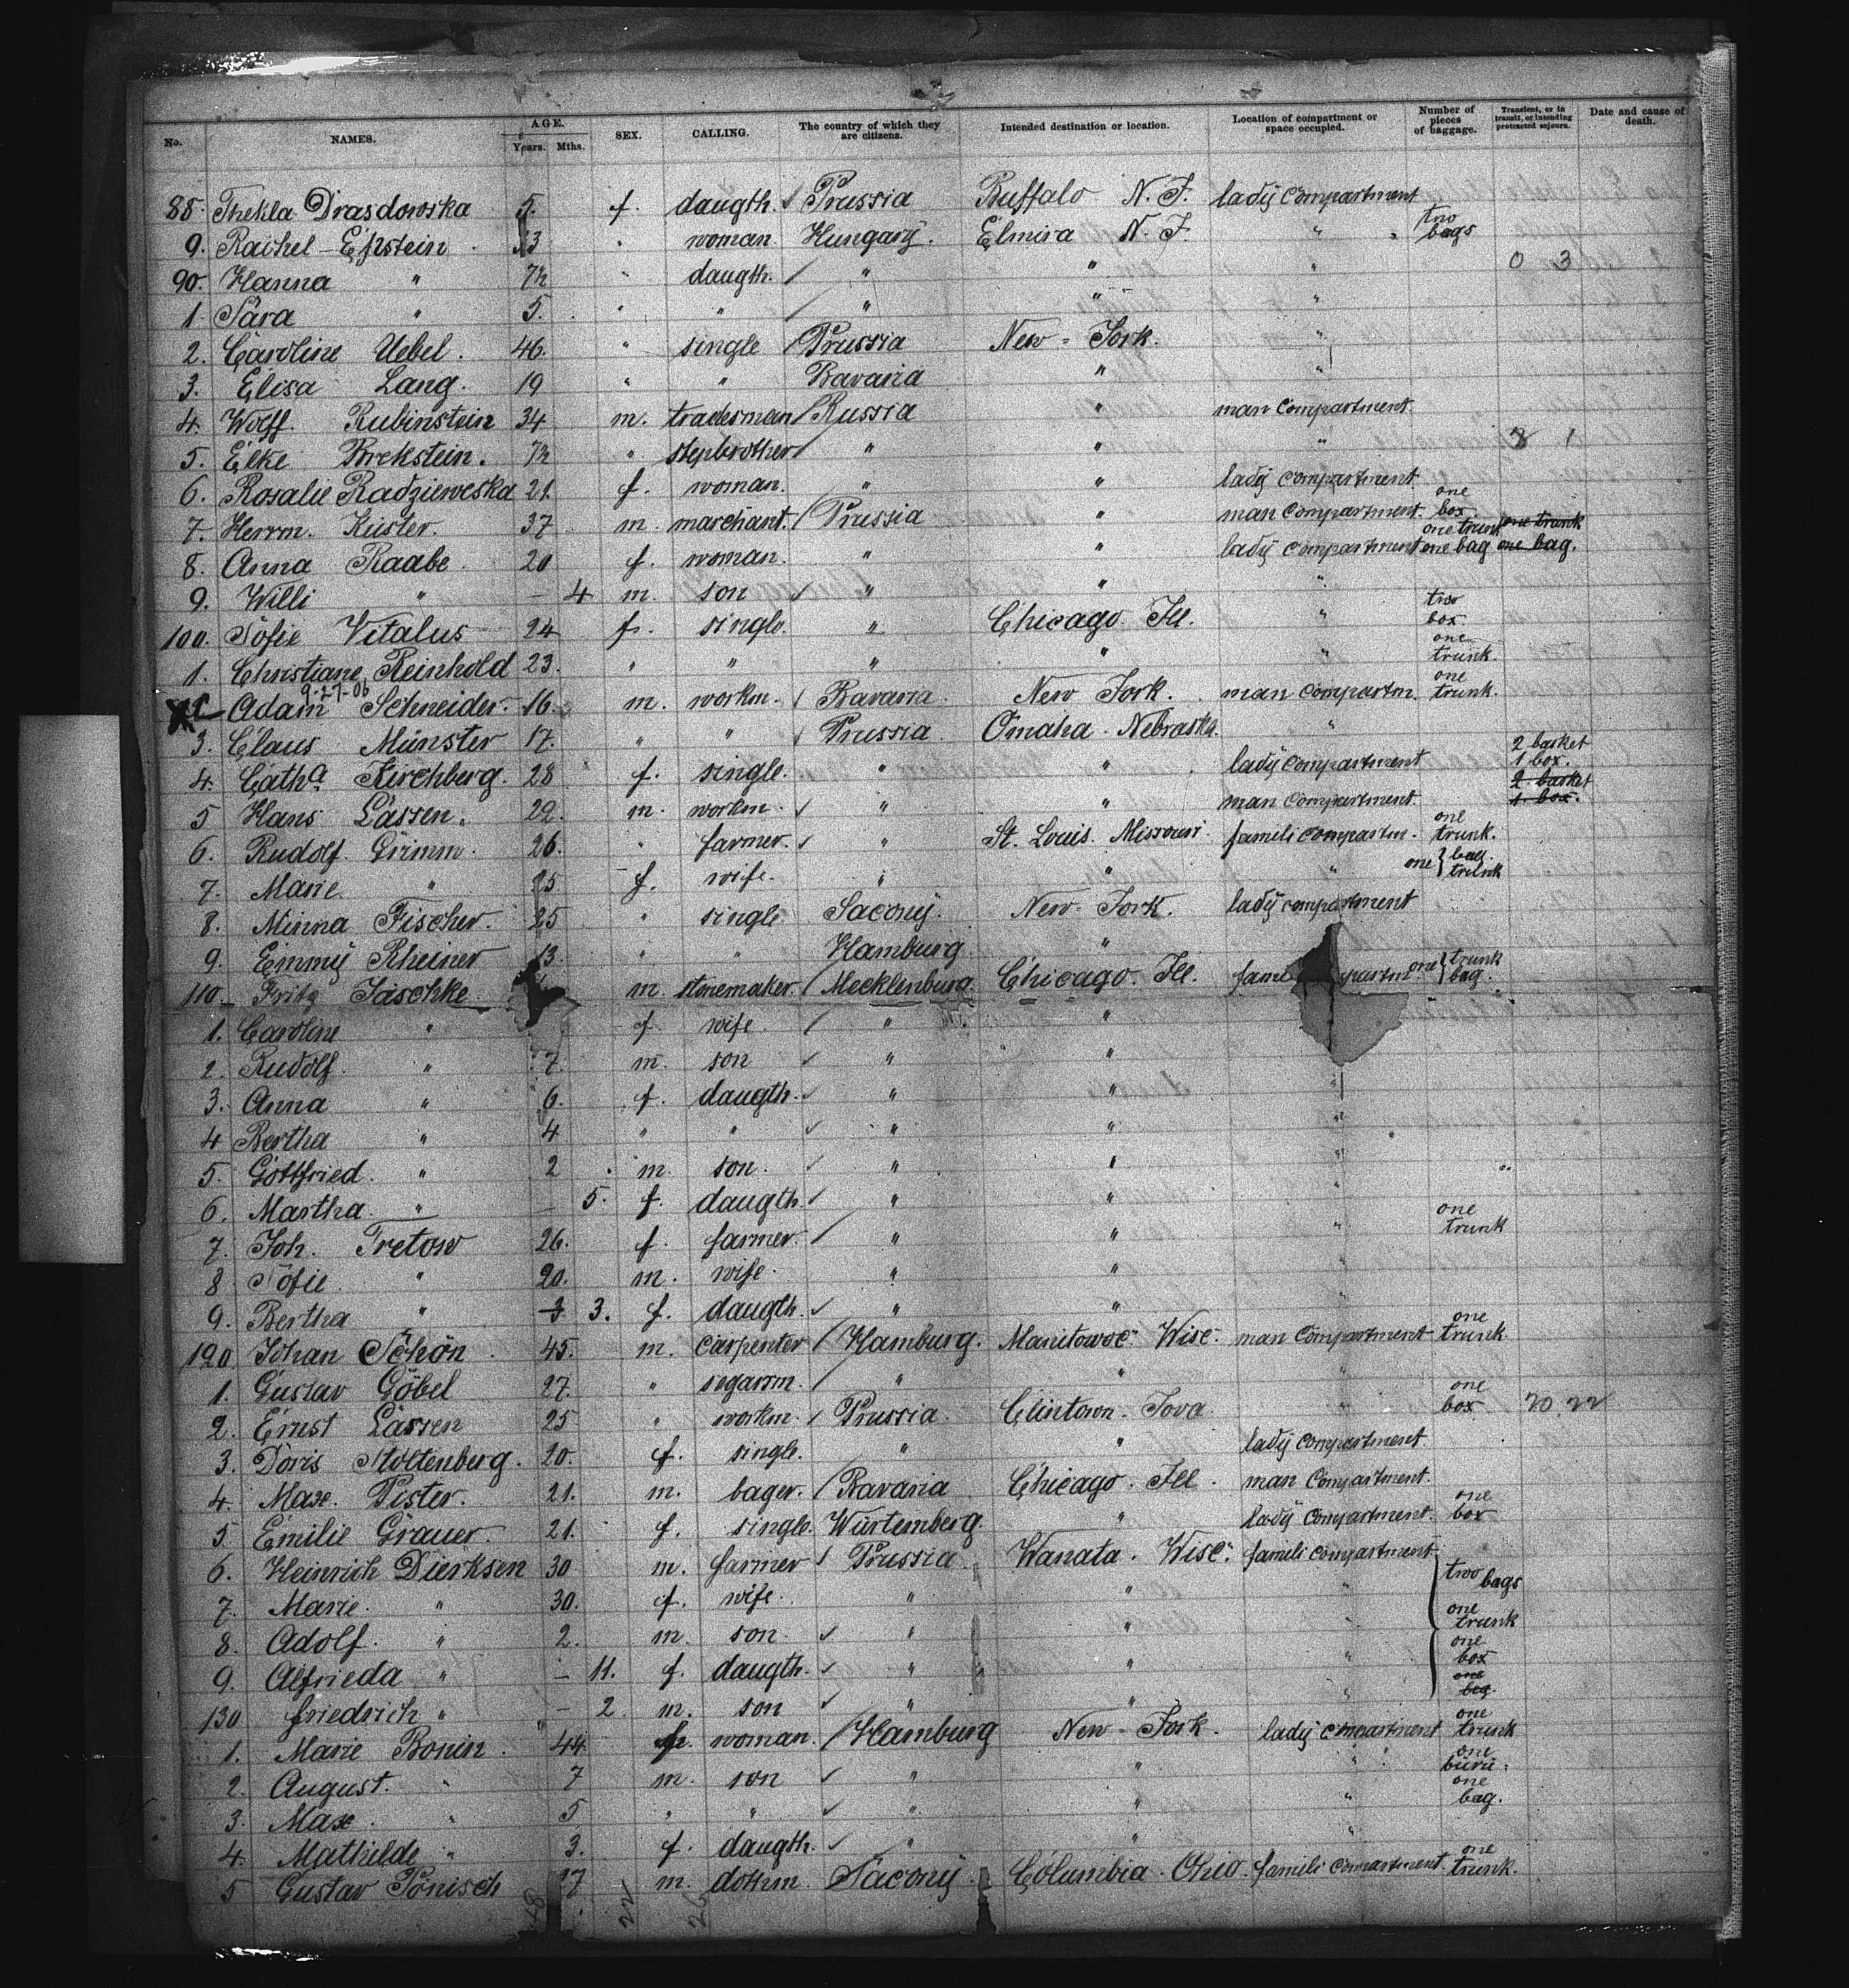 No. NAMES. AGE. Years. Mths. SEX. CALLING. The country of which they are citizens. Intended destination or location. Location of compartment or space occupied. Number of pieces of baggage. Transient, or in transit, or intending protracted sojourn. Date and cause of death.
88. Thekla Drasdowska 5. f. daugth. Prussia Buffalo N.J. lady compartment
9. Raichel Epstein 33 " woman Hungary. Elmira N.J. " " two bags
90. Hanna " 7½ " daugth. " " " 0 3
1. Sara " 5. " " " " "
2. Caroline Uebel. 46. " single Prussia New-York. "
3. Elisa Lang. 19 " " Bavaria " "
4. Wolff Rubinstein 34 m. tradesman Russia " man compartment
5. Elke Brekstein. 7½ " stepbrother " " " 1
6. Rosalie Radzieweska 21. f. woman. " " lady compartment
7. Herrm. Küster. 37 m. marchant. Prussia " man compartment. one box.
8. Anna Raabe. 20 f. woman. " " lady compartment one trunk one bag one trunk one bag.
9. Willi " – 4 m. son " " "
100. Sofie Vitalus 24 f. single. " Chicago. Ill. " two box
1. Christiane Reinhold 23. " " " " " one trunk.
9-27-06
2 Adam Schneider. 16. m. workm. Bavaria. New York. man compartm. one trunk.
3. Claus Münster 17. " " Prussia. Omaha. Nebraska. "
4. Catha Kirchberg. 28 f. single. " " lady compartment 2 basket 1 box.
5 Hans Lassen. 22. m. workm. " " man compartment. 2 basket 1 box.
6. Rudolf. Grimm. 26. " farmer. " St. Louis. Missouri. famili compartm. one trunk.
7. Marie " 25 f. wife. " " " one trunk
8. Minna Fischer. 25 " single Sacony. New-York. lady compartment
9. Emmy Rheiner 13. " " Hamburg. "
110 Fritz Jaschke m. stonemaker. Mecklenburg. Chicago. Ill. fame partm. one trunk bag.
1. Caroline " f. wife. " "
2. Rudolf. " 7. m. son " "
3. Anna " 6. f. daugth. " " "
4 Bertha " 4 " " " " "
5. Gottfried. " 2 m. son. " " "
6. Martha. " – 5. f. daugth. " " "
7. Joh. Tretow 26. f. farmer. " " " one trunk
8 Sofie. " 20. m. wife. " "
9. Bertha " 3 3. f. daugth. " " "
120 Johan Schön. 45. m. carpenter Hamburg. Manitowoc. Wisc. man compartment one trunk
1. Gustav Göbel 27. " segarrm. " " "
2. Ernst Lassen 25 " workm. Prussia. Clintown. Iova. " one box 20 22
3. Doris Stoltenberg. 20. f. single. " " lady compartment
4. Max. Pister. 21. m. bager. Bavaria Chicago. Ill. man compartment.
5 Emilie Grauer 21. f. single. Würtemberg. " lady compartment. one box
6. Heinrich Dierksen 30 m. farmer Prussia. Wanata. Wisc. famili compartment
7. Marie. " 30. f. wife. " " " two bags
8. Adolf. " 2. m. son " " " one trunk
9. Alfrieda " – 11. f. daugth. " " " one box
130 friedrich " – 2 m. son " " " one bag.
1. Marie Bonin. 44. f. woman. Hamburg New-York. lady compartment one trunk
2. August. " 7 m. son " " " one
3. Max. " 5 " " " " " one bag.
4. Mathilde " 3. f. daugth. " "
5 Gustav Ponisch 17 m. dothm. Sacony. Columbia. Ohio. famili compartment. one trunk.
48 22 26